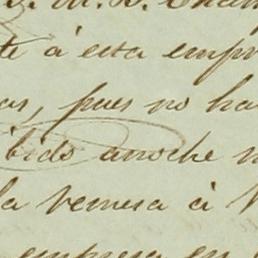 te á esta empr
as, pues no ha
bido anoche
la remesa á
empresa en